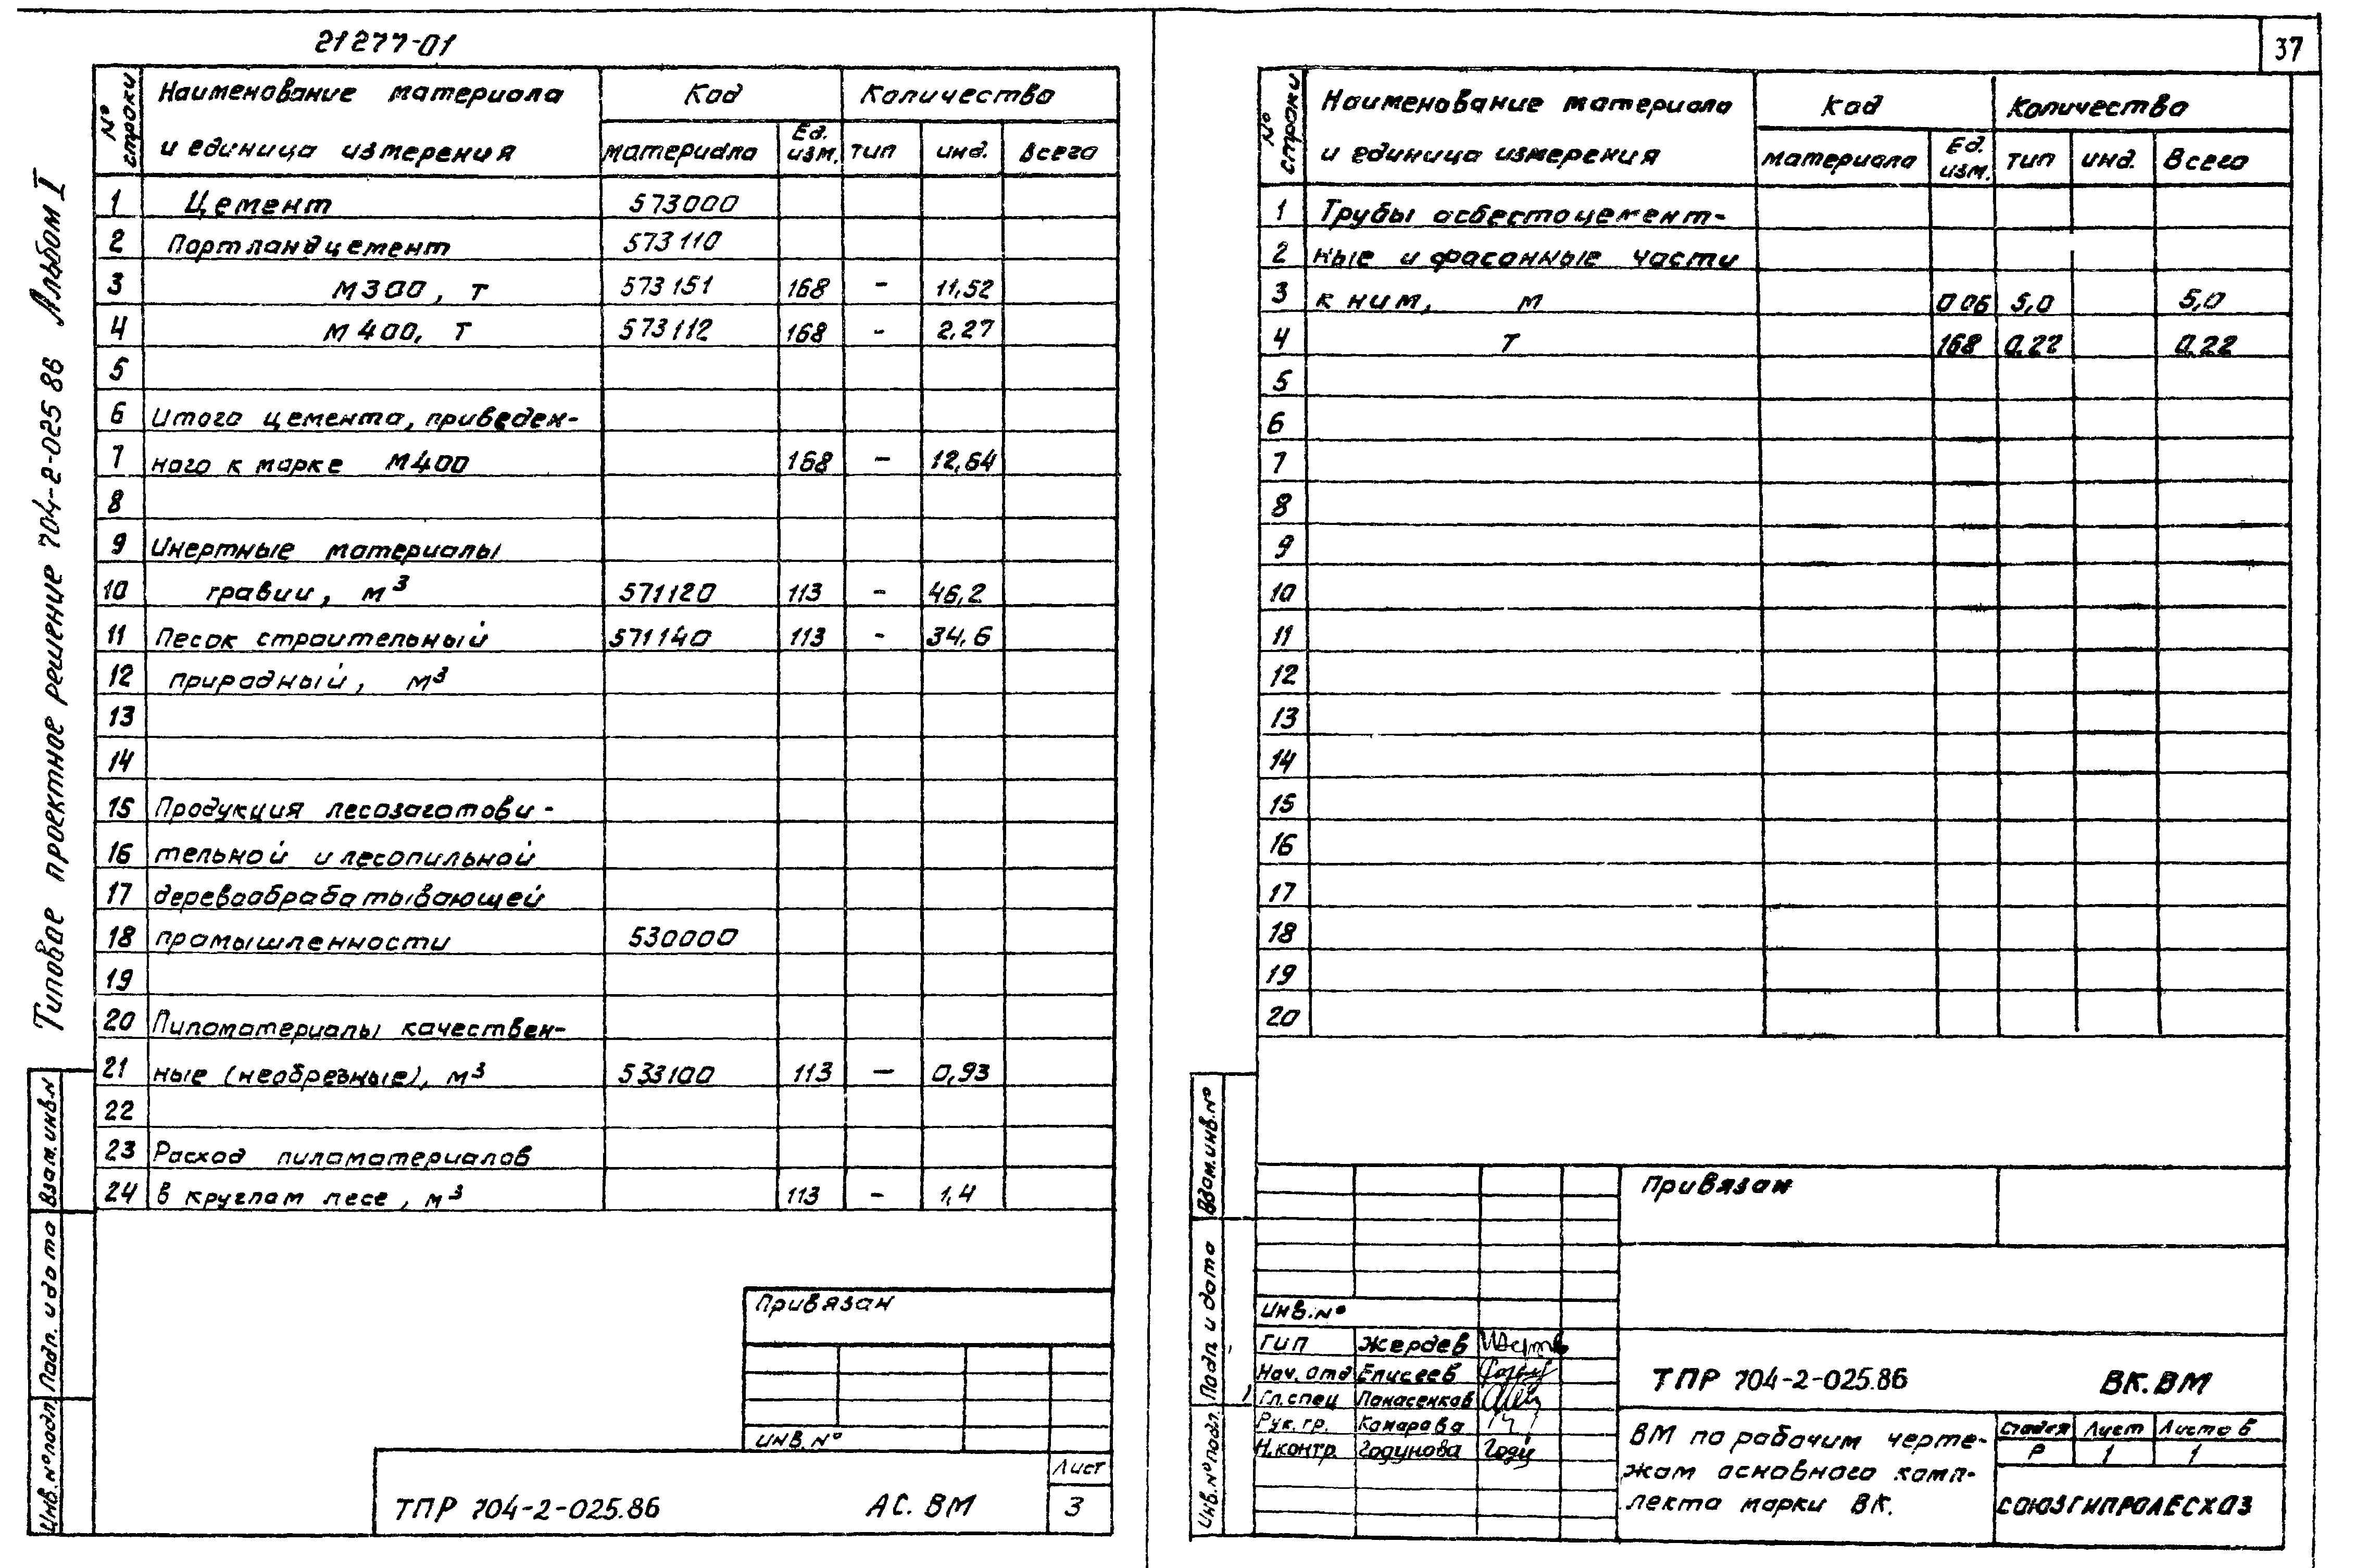 21277-01
37
Типовое проектное решение 704-2-025 86 Альбом I
№ строки
Наименование материала и единица измерения
Код
Количество
материала
Ед. изм.
тип
инд.
всего
1 Цемент 573000
2 Портландцемент 573110
3 М300, т 573151 168 - 11,52
4 М400, т 573112 168 - 2,27
5
6 Итого цемента, приведен-
7 ного к марке М400 168 - 12,64
8
9 Инертные материалы
10 гравии, м³ 571120 113 - 46,2
11 Песок строительный 571140 113 - 34,6
12 природный, м³
13
14
15 Продукция лесозаготови-
16 тельной и лесопильной
17 деревообрабатывающей
18 промышленности 530000
19
20 Пиломатериалы качествен-
21 ные (необрезные), м³ 533100 113 — 0,93
22
23 Расход пиломатериалов
24 в круглом лесе, м³ 113 - 1,4
Привязан
Инв.№
ТПР 704-2-025.86 АС. ВМ
Лист
3
Взам.инв.№
Подп. и дата
Инв.№подл.
№ строки
Наименование материала и единица измерения
Код
Количество
материала
Ед. изм.
тип
инд.
Всего
1 Трубы асбестоцемент-
2 ные и фасонные части
3 к ним, м 006 5,0 5,0
4 т 168 0,22 0,22
5
6
7
8
9
10
11
12
13
14
15
16
17
18
19
20
Взам.инв.№
Подп. и дата
Инв.№подл.
Привязан
Инв.№
ГИП Жердев
Нач. отд Елисеев
Гл.спец Понасенков
Рук. гр. Комарова
Н.контр. Годунова
ТПР 704-2-025.86 ВК.ВМ
ВМ по рабочим черте-
жам основного комп-
лекта марки ВК.
Стадия Лист Листов
Р 1 1
СОЮЗГИПРОЛЕСХОЗ